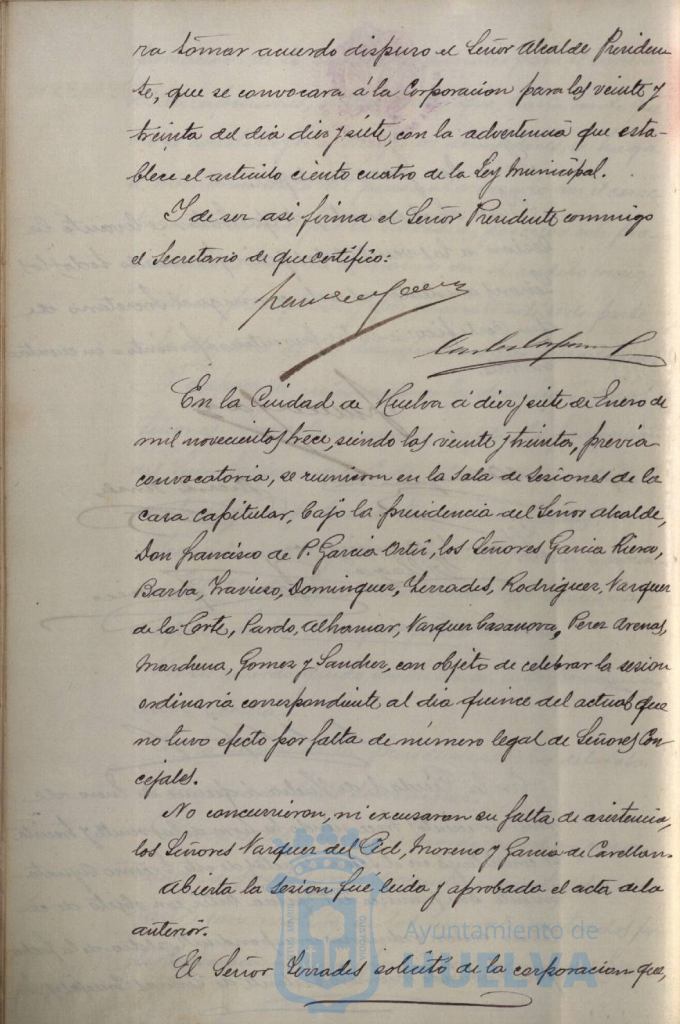 ra tomar acuerdo dispuso el Señor Alcalde Presiden-
te, que se convocara á la Corporacion para las veinte y
treinta del dia diez y siete, con la advertencia que esta-
blece el articulo ciento cuatro de la Ley Municipal.
Y de ser asi firma el Señor Presidente conmigo
el Secretario de que certifico:
En la Ciudad de Huelva á diez y siete de Enero de
mil novecientos trece, siendo las veinte y treinta, previa
convocatoria, se reunieron en la Sala de Sesiones de la
casa capitular, bajo la presidencia del Señor Alcalde,
Don Francisco de P. Garcia Ortiz, los Señores Garcia Riero,
Barba, Travieso, Dominguez, Terrades, Rodriguez, Vazquez
de la Corte, Pardo, Alhomar, Vazquez Casanova, Perez Arenas,
Marchena, Gomez y Sanchez, con objeto de celebrar la sesion
ordinaria correspondiente al dia quince del actual que
no tuvo efecto por falta de número legal de Señores Con-
cejales.
No concurrieron, ni excusaron su falta de asistencia,
los Señores Vazquez del Cid, Moreno y Garcia de
Abierta la sesion fué leida y aprobada el acta de la
anterior.
El Señor Terrades solicitó de la corporacion que,
Ayuntamiento de
HUELVA